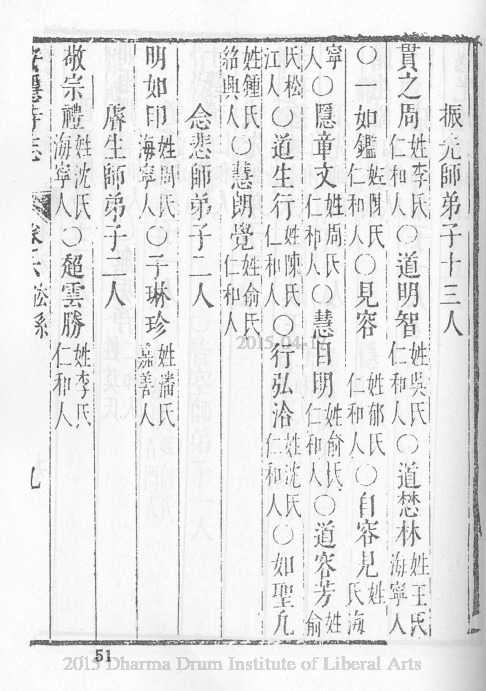 振光師弟子十三人
貫之周姓李氏仁和人○道明智姓吳氏仁和人○道楙林姓王氏海寧人
○一如鑑姓陳氏仁和人○見容姓郁氏仁和人○自容見姓氏海
寧人○隱章文姓周氏仁和人○慧目明姓俞氏仁和人○道容芳姓俞
氏松江人○道生行姓陳氏仁和人○行弘洽姓沈氏仁和人○如聖凡
姓鍾氏紹興人○慧朗覺姓俞氏仁和人
念悲師弟子二人
明如印姓周氏海寧人○子琳珍姓潘氏嘉善人
膺生師弟子二人
敬宗禮姓沈氏海寧人○超雲勝姓李氏仁和人
安隱寺志 卷之六 宗系 九
2015-04-17
51
2015 Dharma Drum Institute of Liberal Arts